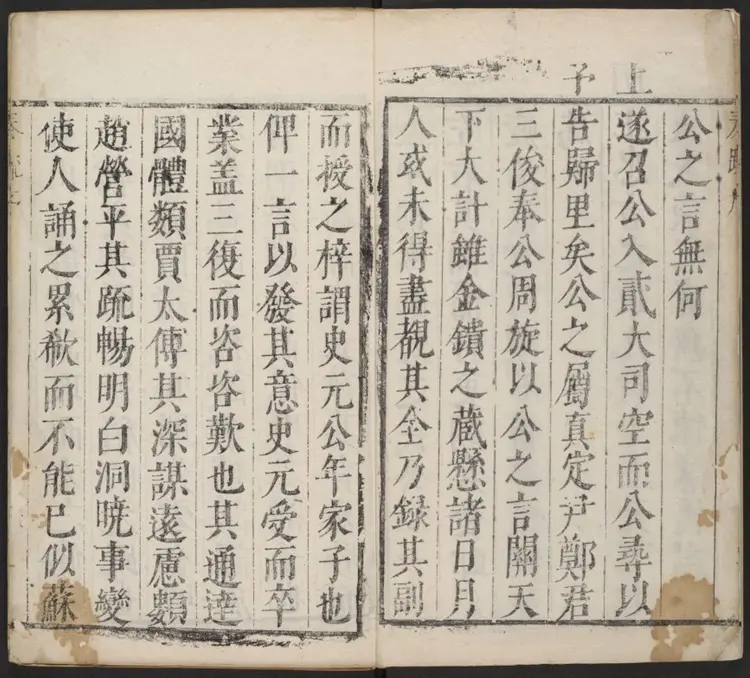 公之言無何
上遂召公入貳大司空而公尋以
予告歸里矣公之屬真定尹鄭君
三俊奉公周旋以公之言關天
下大計雖金鐀之蔵懸諸日月
人或未得盡覩其全乃録其副
而授之梓謂史元公年家子也
俾一言以發其意史元受而卒
業盖三復而咨咨歎也其通達
國體類賈太傅其深謀遠慮類
趙營平其疏暢明白洞曉事變
使人誦之累欷而不能已似蘇